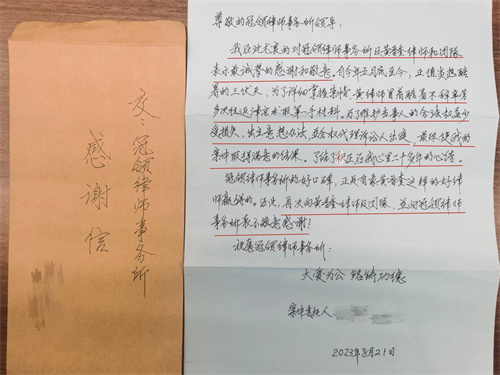 交：冠领律师事务所
感谢信
尊敬的冠领律师事务所领导：
我在此尤衷的对冠领律师事务所及黄普查律师和团队
表示最诚挚的感谢和敬意。自今年五月底至今，正值炎热酷
暑的三伏天，为了详细掌握案情，黄律师冒着酷暑不辞辛苦
多次往返津京求取第一手材料。为了维护当事人的合法权益少
受损失，出主意想办法，并全权代理诉讼人出庭，最终使我的
案件取得满意的结果。了结了积压在我心里二十多年的心结。
冠领律师事务所的好口碑，正是有象黄普查这样的好律
师赢得的。在此，再次向黄普查律师及团队，并向冠领律师
事务所表示敬意感谢！
祝愿冠领律师事务所：
大爱为公 功德
案件委托人
2023年8月21日